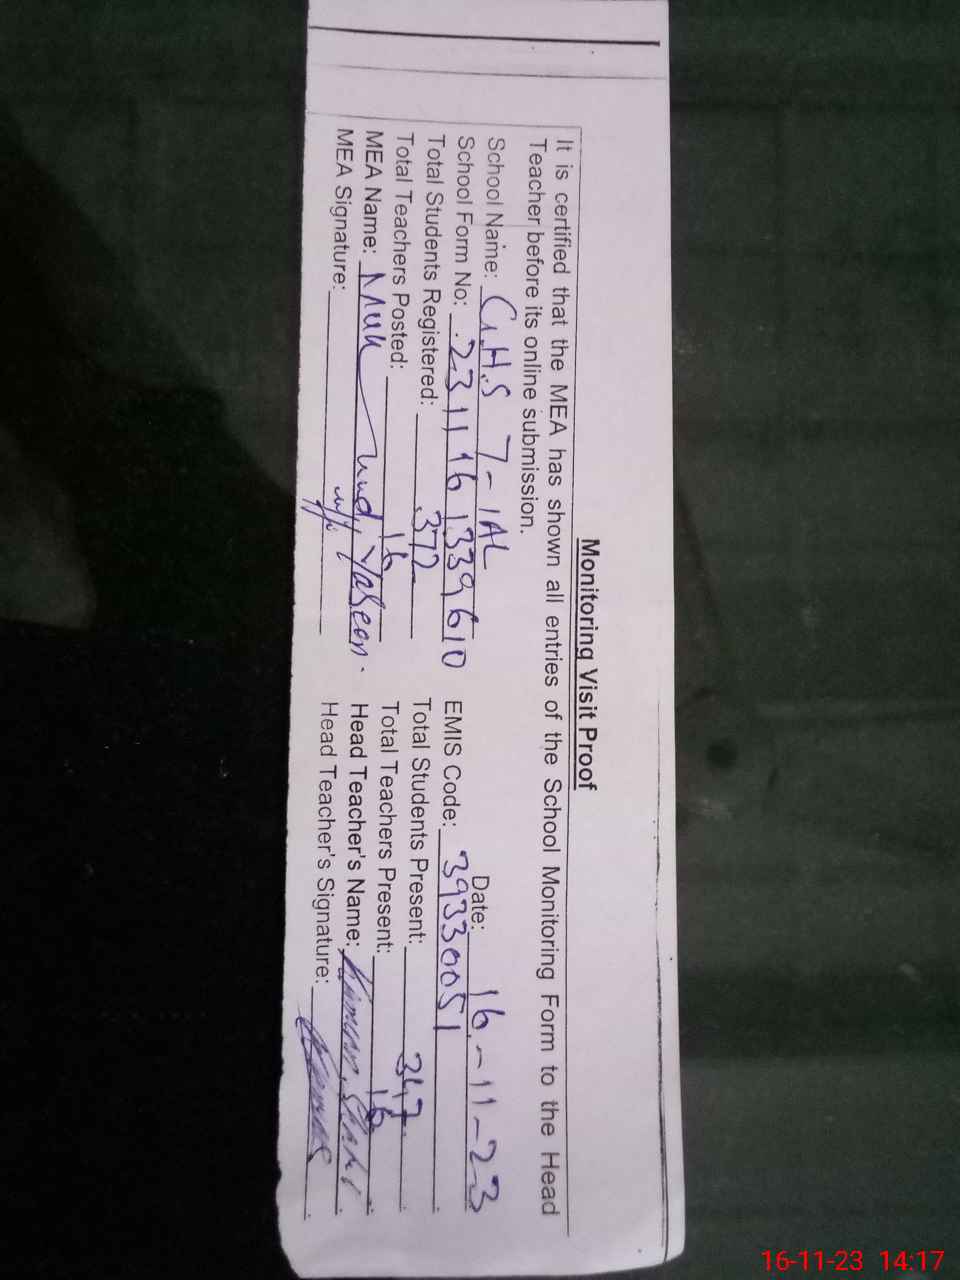 Monitoring Visit Proof
It is certified that the MEA has shown all entries of the School Monitoring Form to the Head
Teacher before its online submission.
School Name: G.H.S 7-1AL Date: 16-11-23
School Form No: 2311161339610 EMIS Code: 39330051
Total Students Registered: 372 Total Students Present: 347
Total Teachers Posted: 16 Total Teachers Present: 16
MEA Name: Yaseen Head Teacher's Name: Kamran
MEA Signature: Head Teacher's Signature:
16-11-23 14:17